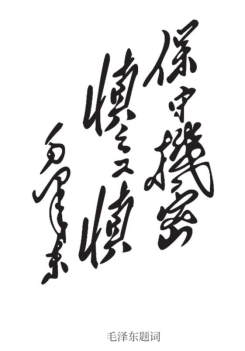 保守機密
慎之又慎
毛澤东
毛泽东题词